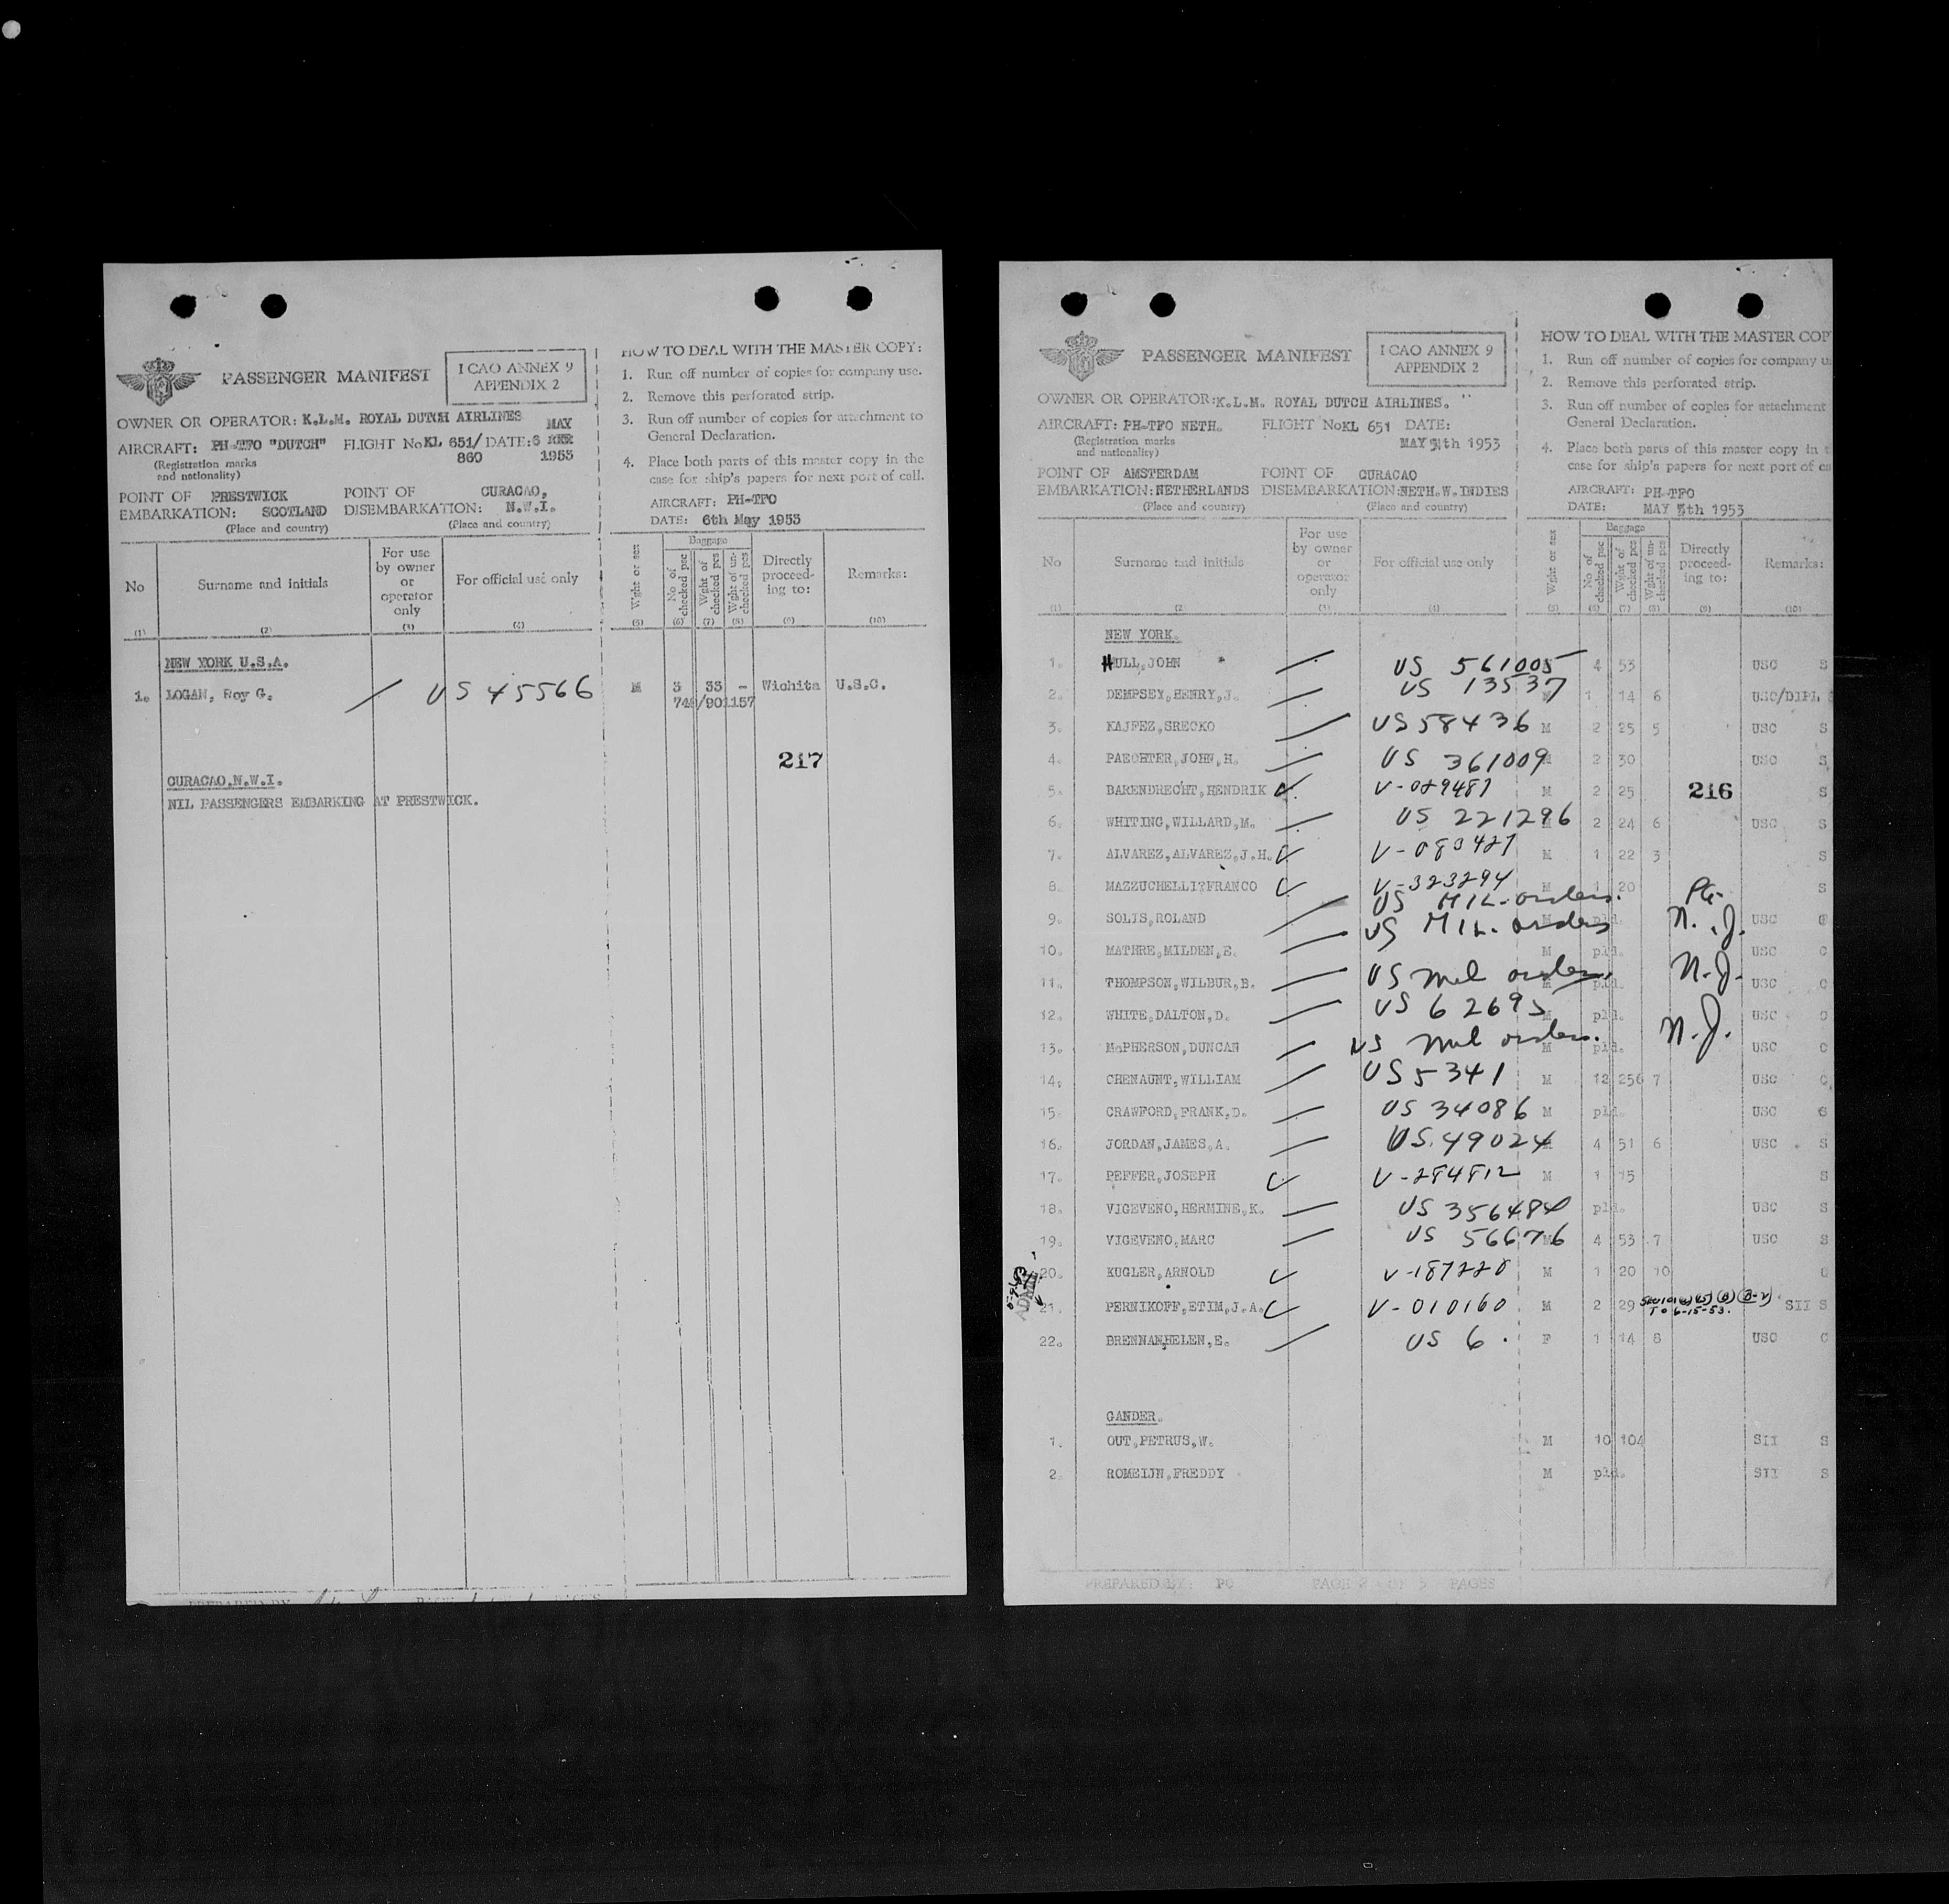 PASSENGER MANIFEST
I CAO ANNEX 9
APPENDIX 2
OWNER OR OPERATOR: K.L.M. ROYAL DUTCH AIRLINES
MAY
AIRCRAFT: PH-TFO "DUTCH" FLIGHT No KL 651/ DATE: 6
860 1953
(Registration marks
and nationality)
POINT OF PRESTWICK POINT OF CURACAO,
EMBARKATION: SCOTLAND DISEMBARKATION: N.W.I.
(Place and country) (Place and country)
HOW TO DEAL WITH THE MASTER COPY:
1. Run off number of copies for company use.
2. Remove this perforated strip.
3. Run off number of copies for attachment to
General Declaration.
4. Place both parts of this master copy in the
case for ship's papers for next port of call.
AIRCRAFT: PH-TFO
DATE: 6th May 1953
No Surname and initials For use by owner or operator only For official use only Wght or sex Baggage No of checked pcs Wght of checked pcs Wght of un-checked pcs Directly proceed-ing to: Remarks:
(1) (2) (3) (4) (5) (6) (7) (8) (9) (10)
NEW YORK U.S.A.
1. LOGAN, Roy G. / US 45566 M 3 33 - Wichita U.S.C.
748/901157
217
CURACAO,N.W.I.
NIL PASSENGERS EMBARKING AT PRESTWICK.
PASSENGER MANIFEST
I CAO ANNEX 9
APPENDIX 2
OWNER OR OPERATOR: K.L.M. ROYAL DUTCH AIRLINES.
AIRCRAFT: PH-TFO NETH. FLIGHT No KL 651 DATE:
(Registration marks
and nationality)
MAY 5th 1953
POINT OF AMSTERDAM POINT OF CURACAO
EMBARKATION: NETHERLANDS DISEMBARKATION: NETH.W.INDIES
(Place and country) (Place and country)
HOW TO DEAL WITH THE MASTER COP
1. Run off number of copies for company u
2. Remove this perforated strip.
3. Run off number of copies for attachment
General Declaration.
4. Place both parts of this master copy in t
case for ship's papers for next port of ca
AIRCRAFT: PH-TFO
DATE: MAY 5th 1953
No Surname and initials For use by owner or operator only For official use only Wght or sex Baggage No of checked pcs Wght of checked pcs Wght of un-checked pcs Directly proceed-ing to: Remarks:
(1) (2) (3) (4) (5) (6) (7) (8) (9) (10)
NEW YORK.
1. HULL,JOHN US 561005 4 53 USC S
2. DEMPSEY,HENRY,J. US 13537 M 1 14 6 USC/DIPL
3. KAJFEZ,SRECKO US 58436 M 2 25 5 USC S
4. PAECHTER,JOHN,H. US 361009 M 2 30 USC S
5. BARENDRECHT,HENDRIK V-089487 M 2 25 216 S
6. WHITING,WILLARD,M. US 221296 M 2 24 6 USC S
7. ALVAREZ,ALVAREZ,J.H. V-080427 M 1 22 3 S
8. MAZZUCHELLI?FRANCO V-323294 M 1 20 S
9. SOLIS,ROLAND US MIL. orders. M pld. USC
10. MATHRE,MILDEN,E. US MIL. orders M pld. N.J. USC C
11. THOMPSON,WILBUR,B. US Mil orders. M pld. N.J. USC C
12. WHITE,DALTON,D. US 62695 M pld. USC C
13. McPHERSON,DUNCAN US Mil orders. M pld. N.J. USC C
14. CHENAUNT,WILLIAM US 5341 M 12 256 7 USC C
15. CRAWFORD,FRANK,D. US 34086 M pld. USC S
16. JORDAN,JAMES,A. US. 49024 M 4 51 6 USC S
17. PEFFER,JOSEPH V-284812 M 1 15 S
18. VIGEVENO,HERMINE,K. US 356484 pld. USC S
19. VIGEVENO,MARC US 56676 M 4 53 7 USC S
20. KUGLER,ARNOLD V-187228 M 1 20 10 C
21. PERNIKOFF,ETIM,J.A. V-010160 M 2 29 TO 6-15-53. SII S
22. BRENNAN,HELEN,E. US 6. F 1 14 8 USC C
GANDER.
1. OUT,PETRUS,W. M 10 104 SII S
2. ROMEIJN,FREDDY M pld. SII S
PREPARED BY: PO PAGE 2 OF 3 PAGES